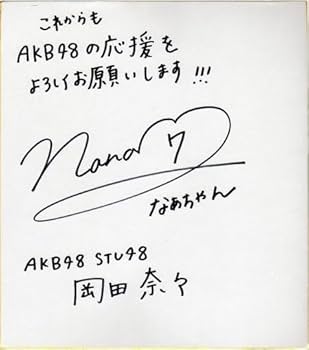 これからも
AKB48の応援を
よろしくお願いします!!!
Nana♡7
なぁちゃん
AKB48 STU48
岡田奈々